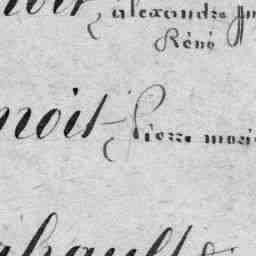 noit, alexandre
René
noit, Pierre marie
ahault